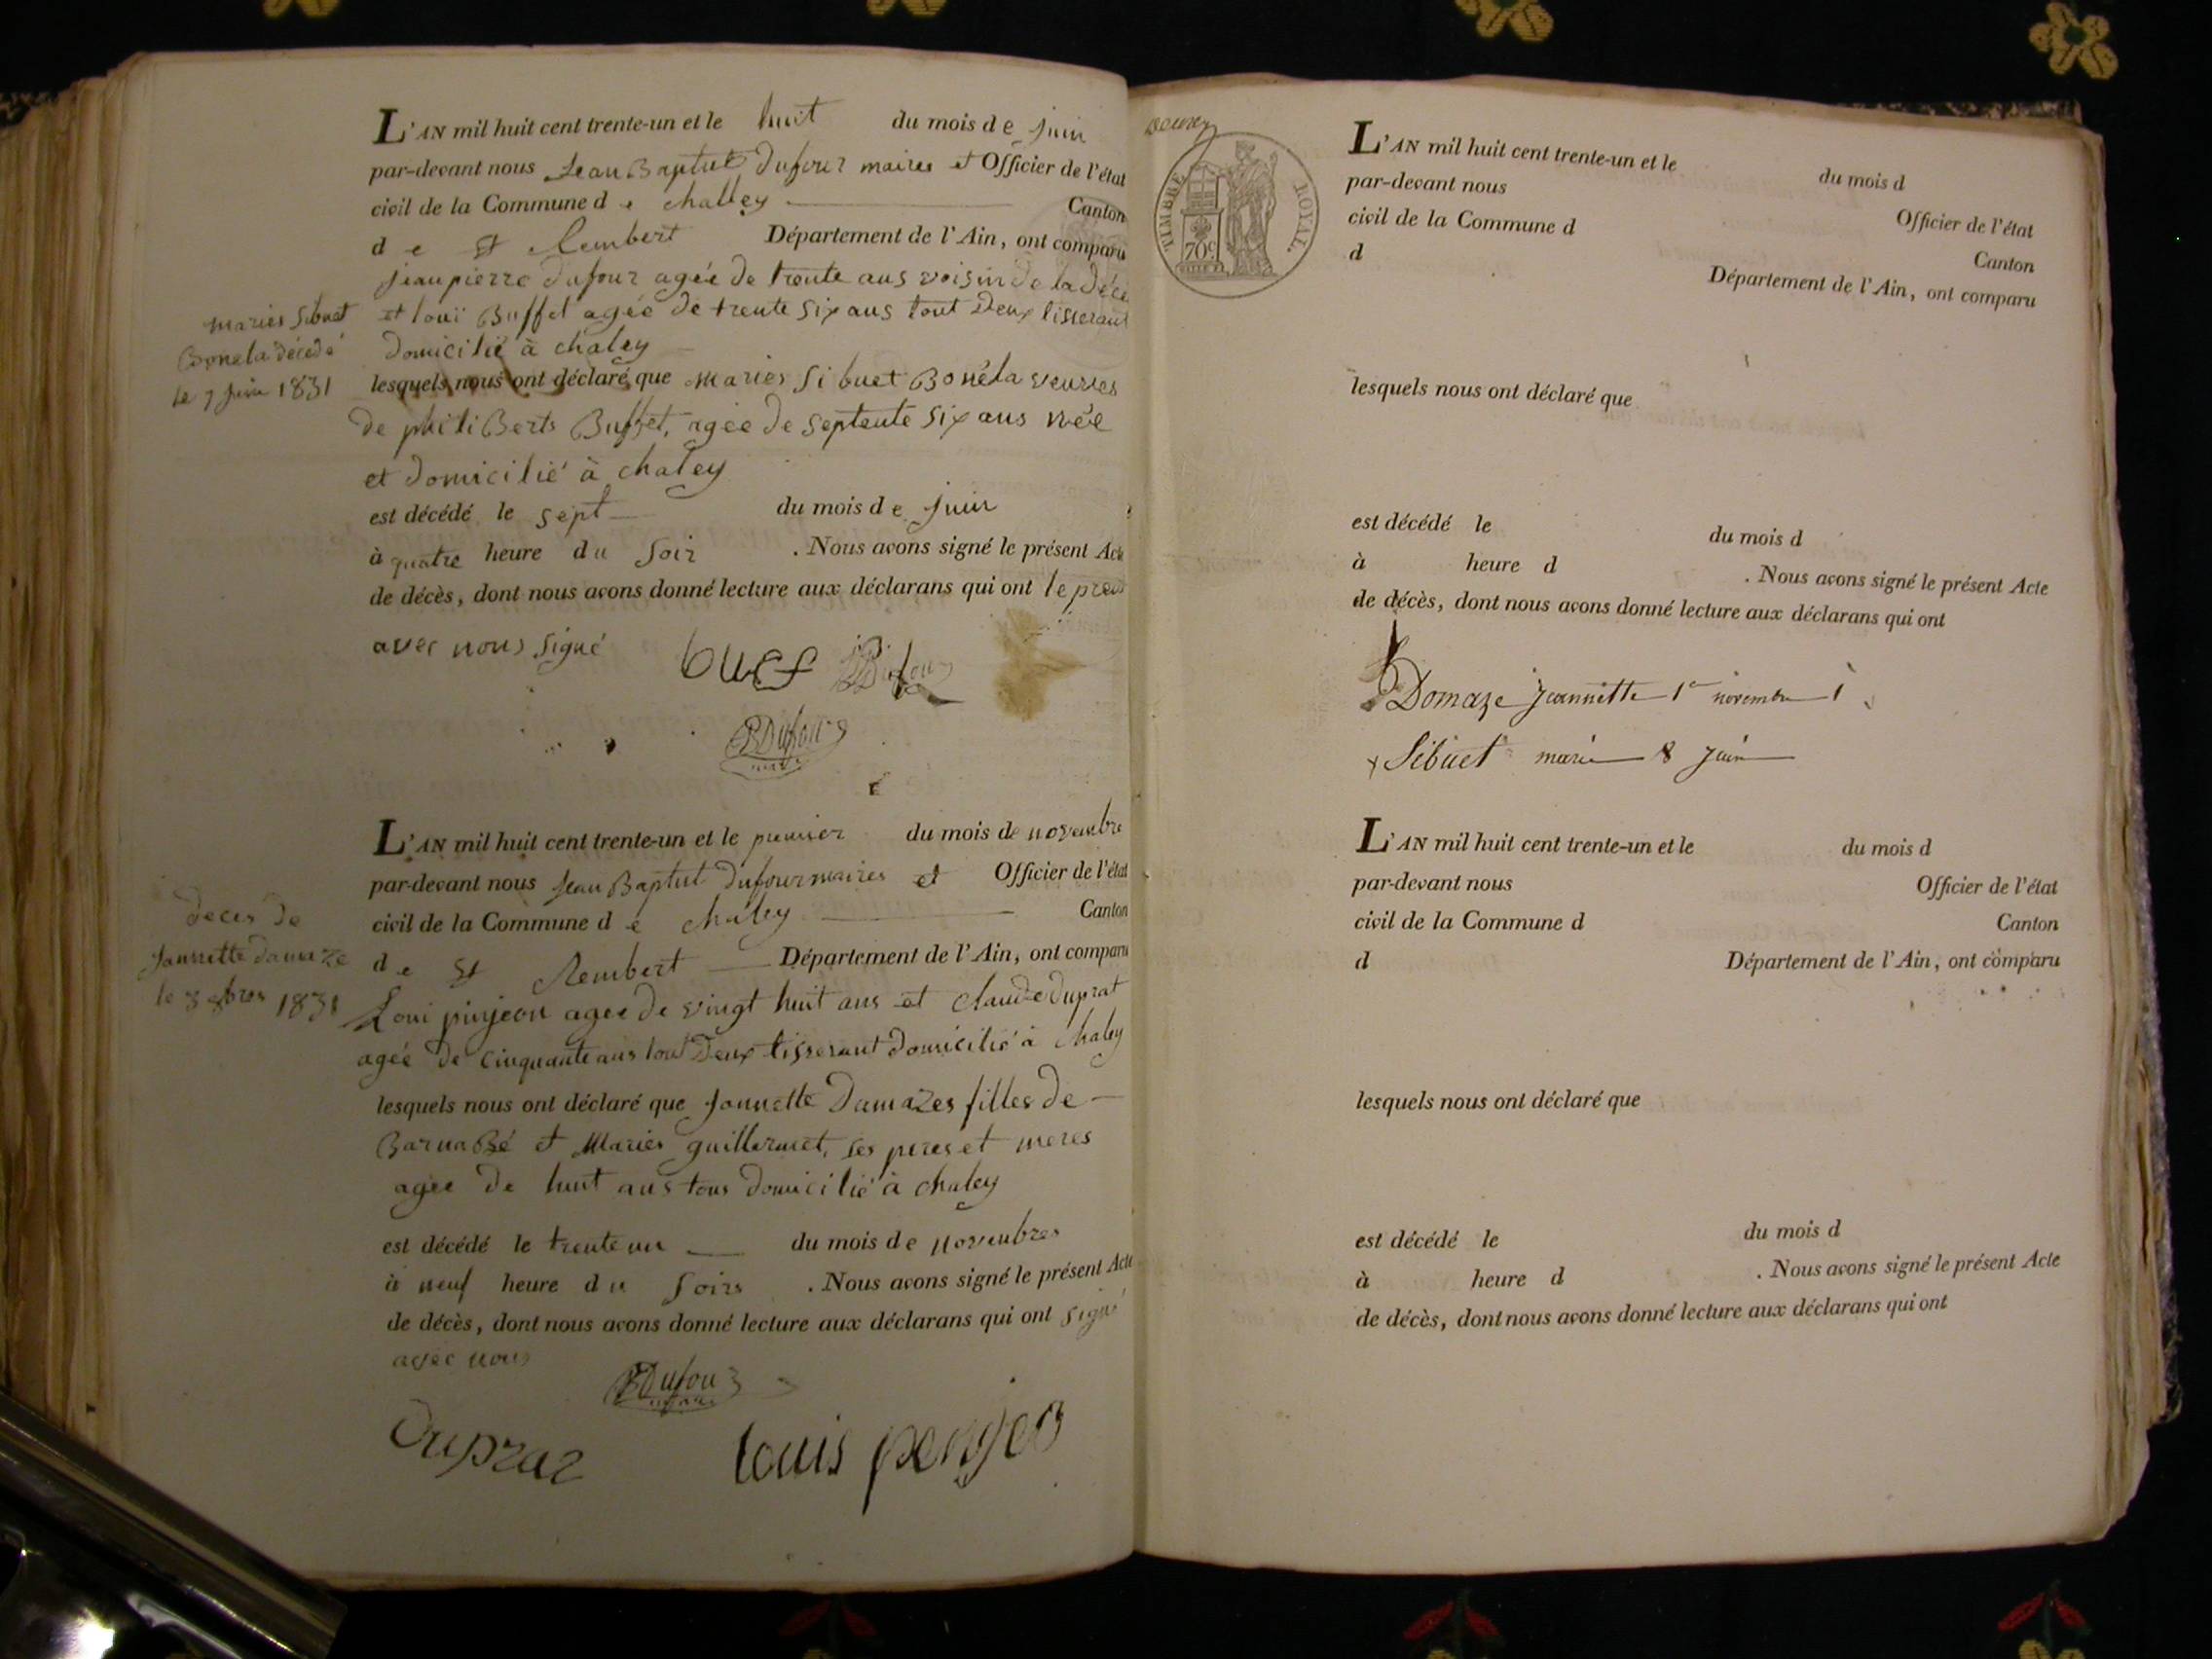 L'AN mil huit cent trente-un et le huit du mois de juin
par-devant nous Jean Baptist Dufour maires et Officier de l'état
civil de la Commune de challey Canton
de St Rembert Département de l'Ain, ont comparu
jean pierre Dufour agée de trente ans voisin de la
et loui Buffet agée de trente six ans tout Deux tisserant
domicilié à chaley
maries Sibuet
Bonela décédé
le 7 juin 1831
lesquels nous ont déclaré que maries Sibuet Bonéla veuves
de philiBerts Buffet, agée de septente six ans née
et domicilié à chaley
est décédé le sept du mois de juin
à quatre heure du soir . Nous avons signé le présent Acte
de décès, dont nous avons donné lecture aux déclarans qui ont le
avec nous signé
Dufour
L'AN mil huit cent trente-un et le premier du mois de novembre
par-devant nous Jean Baptist Dufour maires et Officier de l'état
civil de la Commune de chaley Canton
de St Rembert Département de l'Ain, ont comparu
deces de
Jannette Damaze
le 3 1831
Loui pinjeon agee de vingt huit ans et claude Duprat
agée de cinquante ans tout Deux tisserant domicilié à chaley
lesquels nous ont déclaré que Jonnette Damazes filles de
BarnaBé et Maries guillermet, ses peres et meres
agée de huit ans tous domicilié à chaley
est décédé le trente un du mois de novembres
à neuf heure du soirs . Nous avons signé le présent Acte
de décès, dont nous avons donné lecture aux déclarans qui ont signé
avec nous
Dufour
Dupraz louis penjeo
TIMBRE ROYAL.
70c
L'AN mil huit cent trente-un et le du mois d
par-devant nous Officier de l'état
civil de la Commune d Canton
d Département de l'Ain, ont comparu
lesquels nous ont déclaré que
est décédé le du mois d
à heure d . Nous avons signé le présent Acte
de décès, dont nous avons donné lecture aux déclarans qui ont
Domaze jeannette 1er novembre 1
x Sibuet marie 8 juin
L'AN mil huit cent trente-un et le du mois d
par-devant nous Officier de l'état
civil de la Commune d Canton
d Département de l'Ain, ont comparu
lesquels nous ont déclaré que
est décédé le du mois d
à heure d . Nous avons signé le présent Acte
de décès, dont nous avons donné lecture aux déclarans qui ont